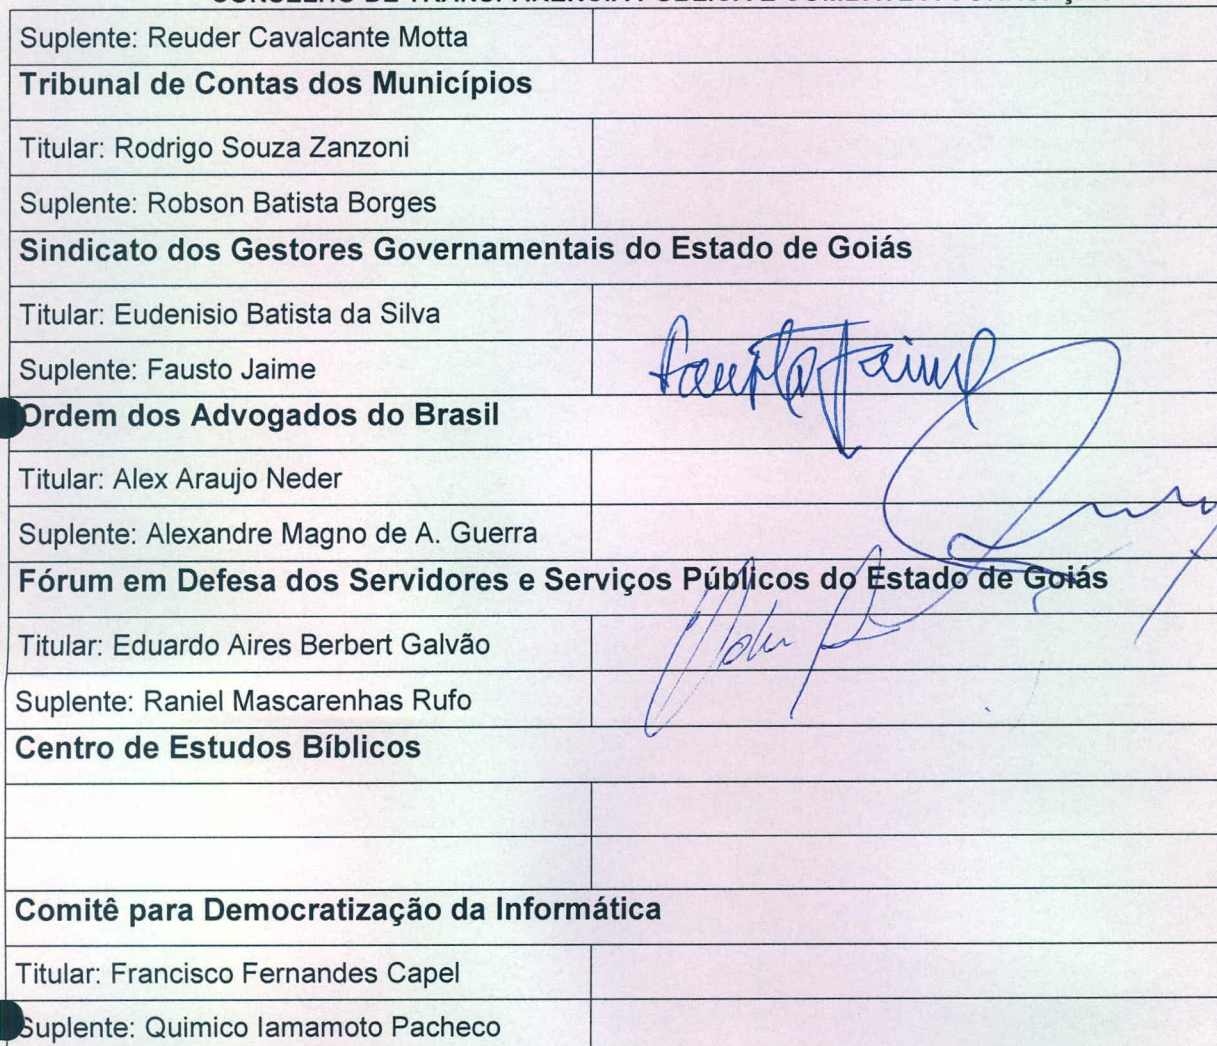 Suplente: Reuder Cavalcante Motta
Tribunal de Contas dos Municípios
Titular: Rodrigo Souza Zanzoni
Suplente: Robson Batista Borges
Sindicato dos Gestores Governamentais do Estado de Goiás
Titular: Eudenisio Batista da Silva
Suplente: Fausto Jaime
Fausto Jaime
Ordem dos Advogados do Brasil
Titular: Alex Araujo Neder
Suplente: Alexandre Magno de A. Guerra
Fórum em Defesa dos Servidores e Serviços Públicos do Estado de Goiás
Titular: Eduardo Aires Berbert Galvão
Suplente: Raniel Mascarenhas Rufo
Centro de Estudos Bíblicos
Comitê para Democratização da Informática
Titular: Francisco Fernandes Capel
Suplente: Quimico Iamamoto Pacheco